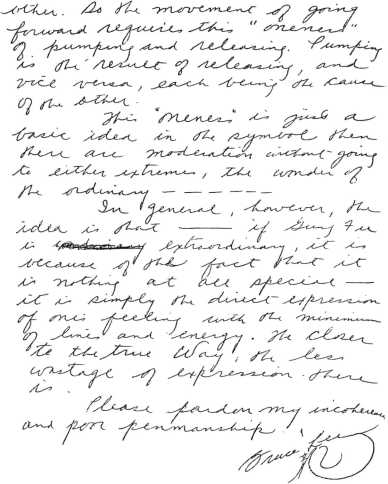 other. So the movement of going
forward requires this "oneness"
of pumping and releasing. Pumping
is the result of releasing, and
vice versa, each being the cause
of the other.
This "oneness" is just a
basic idea in the symbol then
there are moderation without going
to either extremes, the wonder of
the ordinary — — — — — —
In general, however, the
idea is that —— if Gung Fu
is extraordinary, it is
because of the fact that it
is nothing at all special —
it is simply the direct expression
of one's feeling with the minimum
of lines and energy. The closer
to the true Way, the less
wastage of expression there
is.
Please pardon my incoherence
and poor penmanship!
Bruce Lee